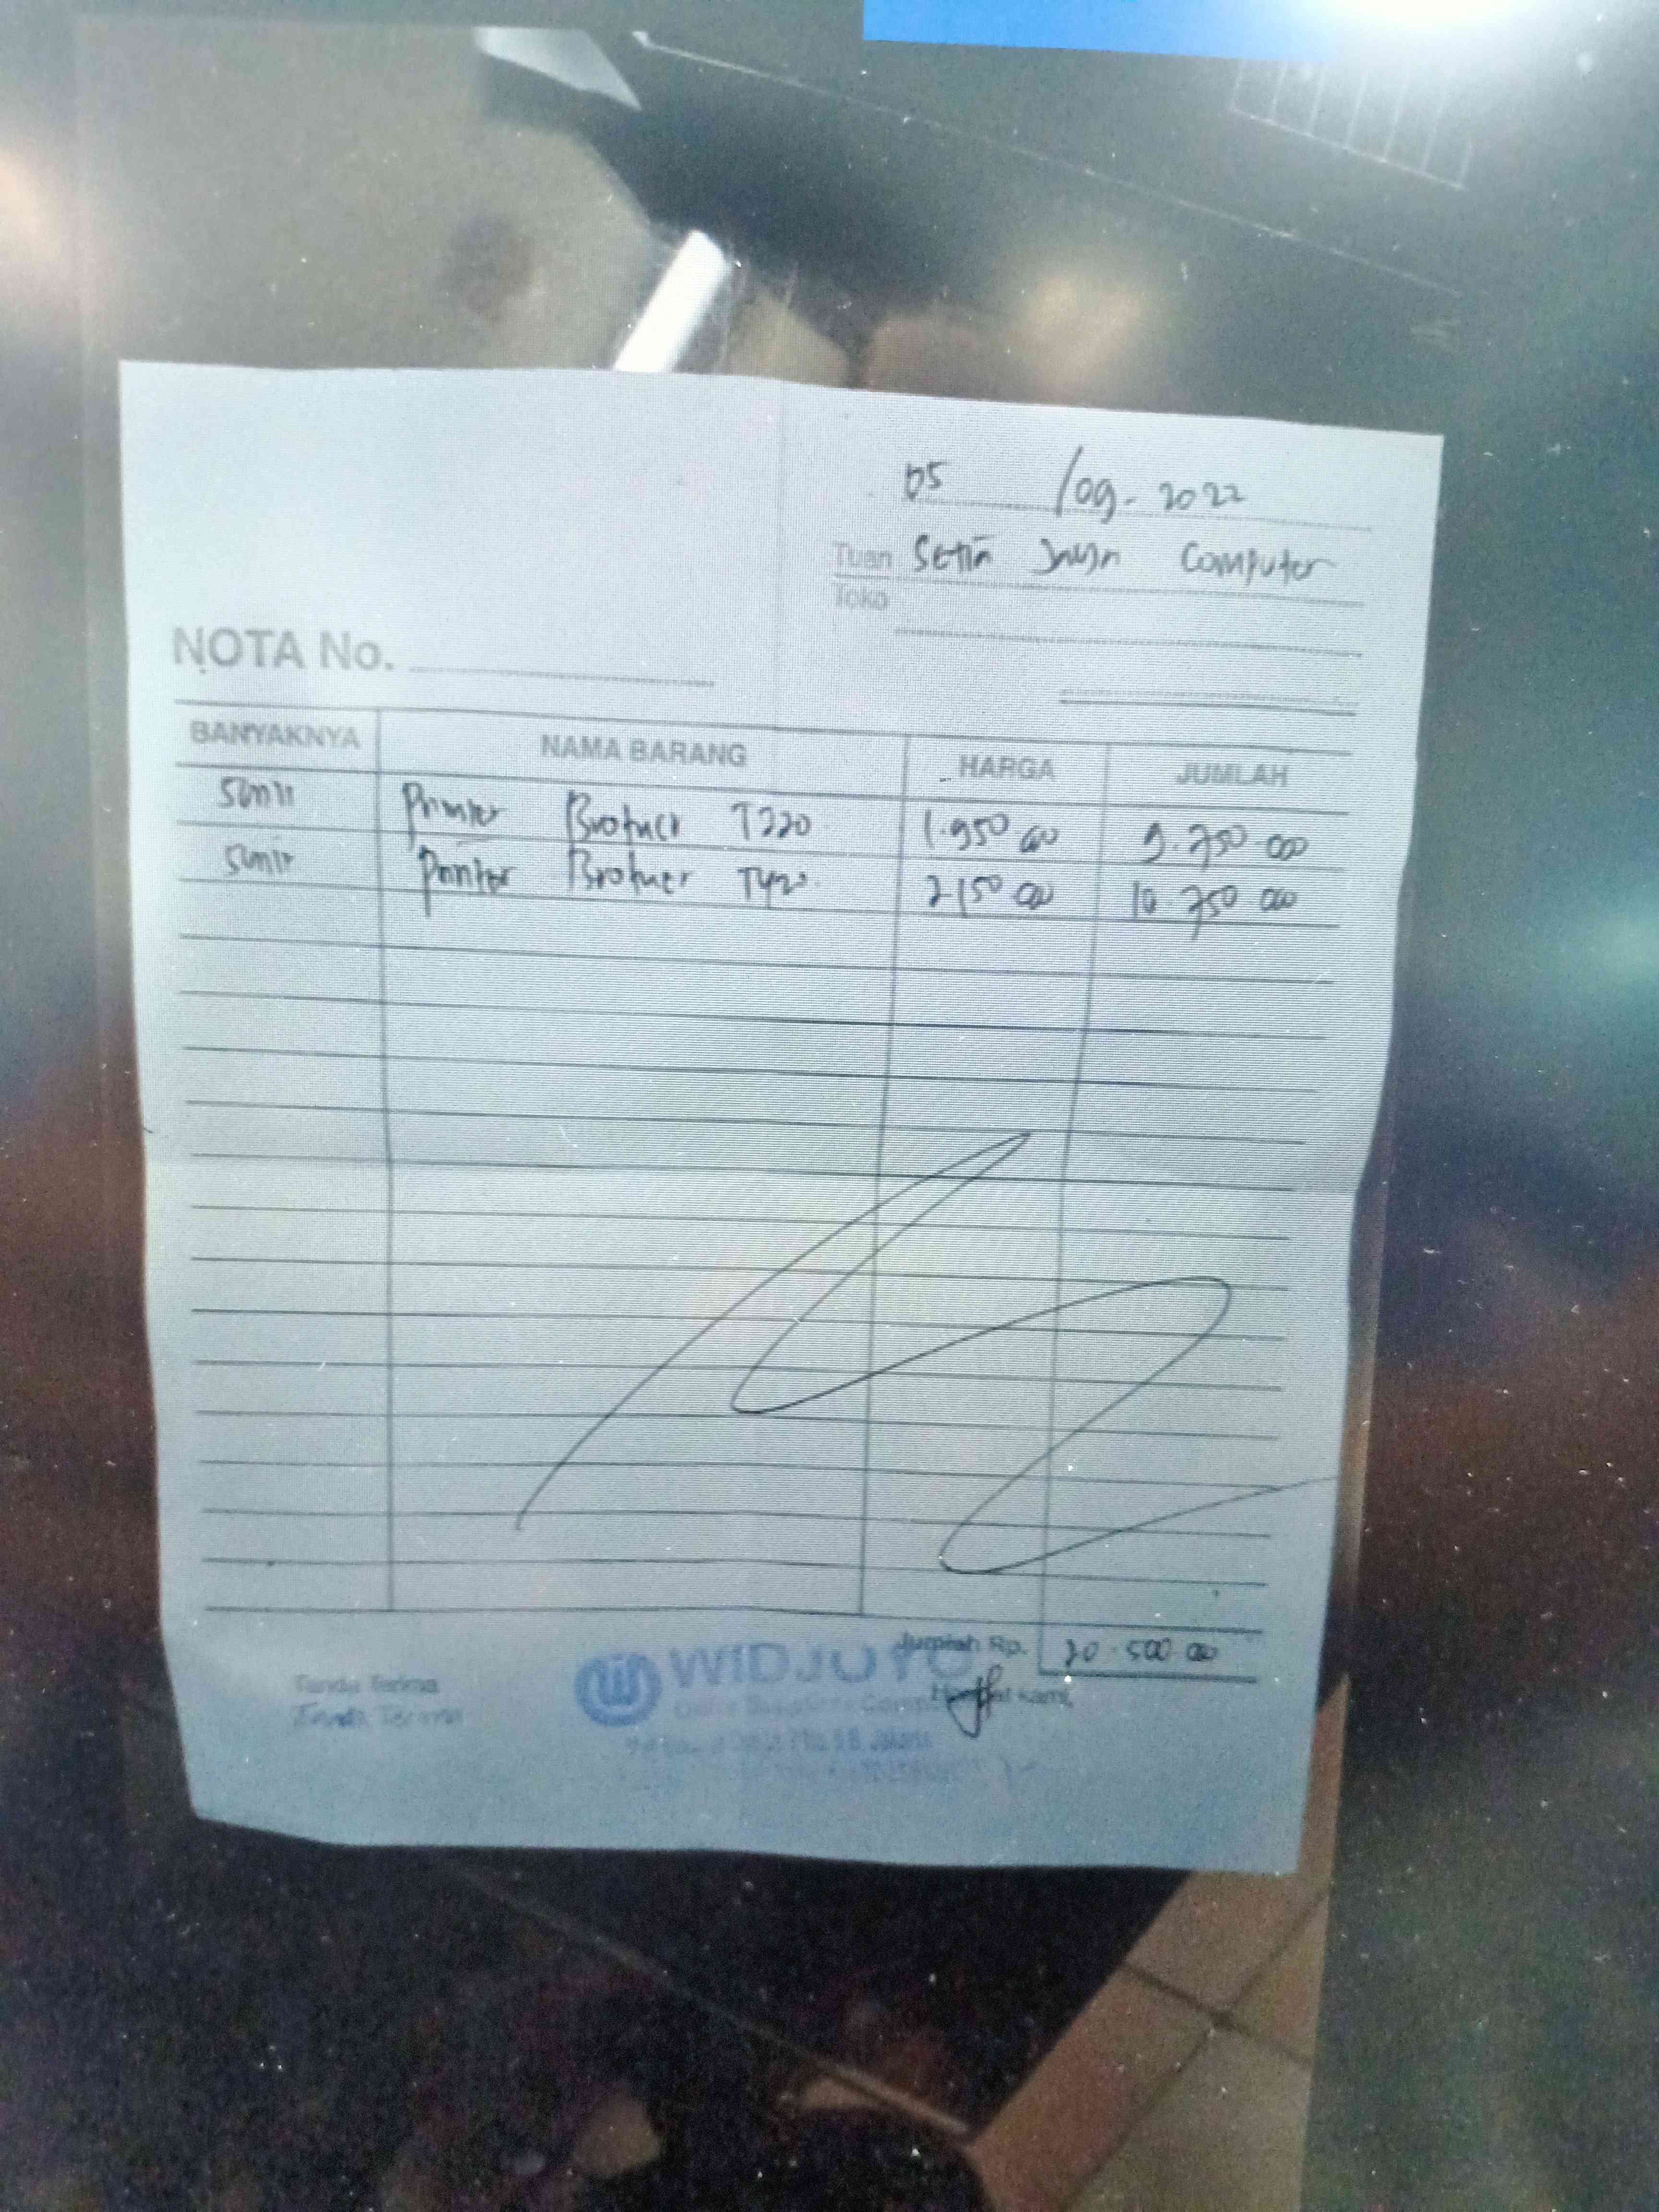 05 /09-2022
Tuan Setia Jaya Computer
Toko
NOTA No.
BANYAKNYA NAMA BARANG HARGA JUMLAH
5unit Printer Brother T220 1.950 000 9.750 000
5unit Printer Brother T420 2 150 000 10 750 000
Jumlah Rp. 20.500 000
WIDJOYO
Tanda Terima Hormat kami,
Tanda Terima